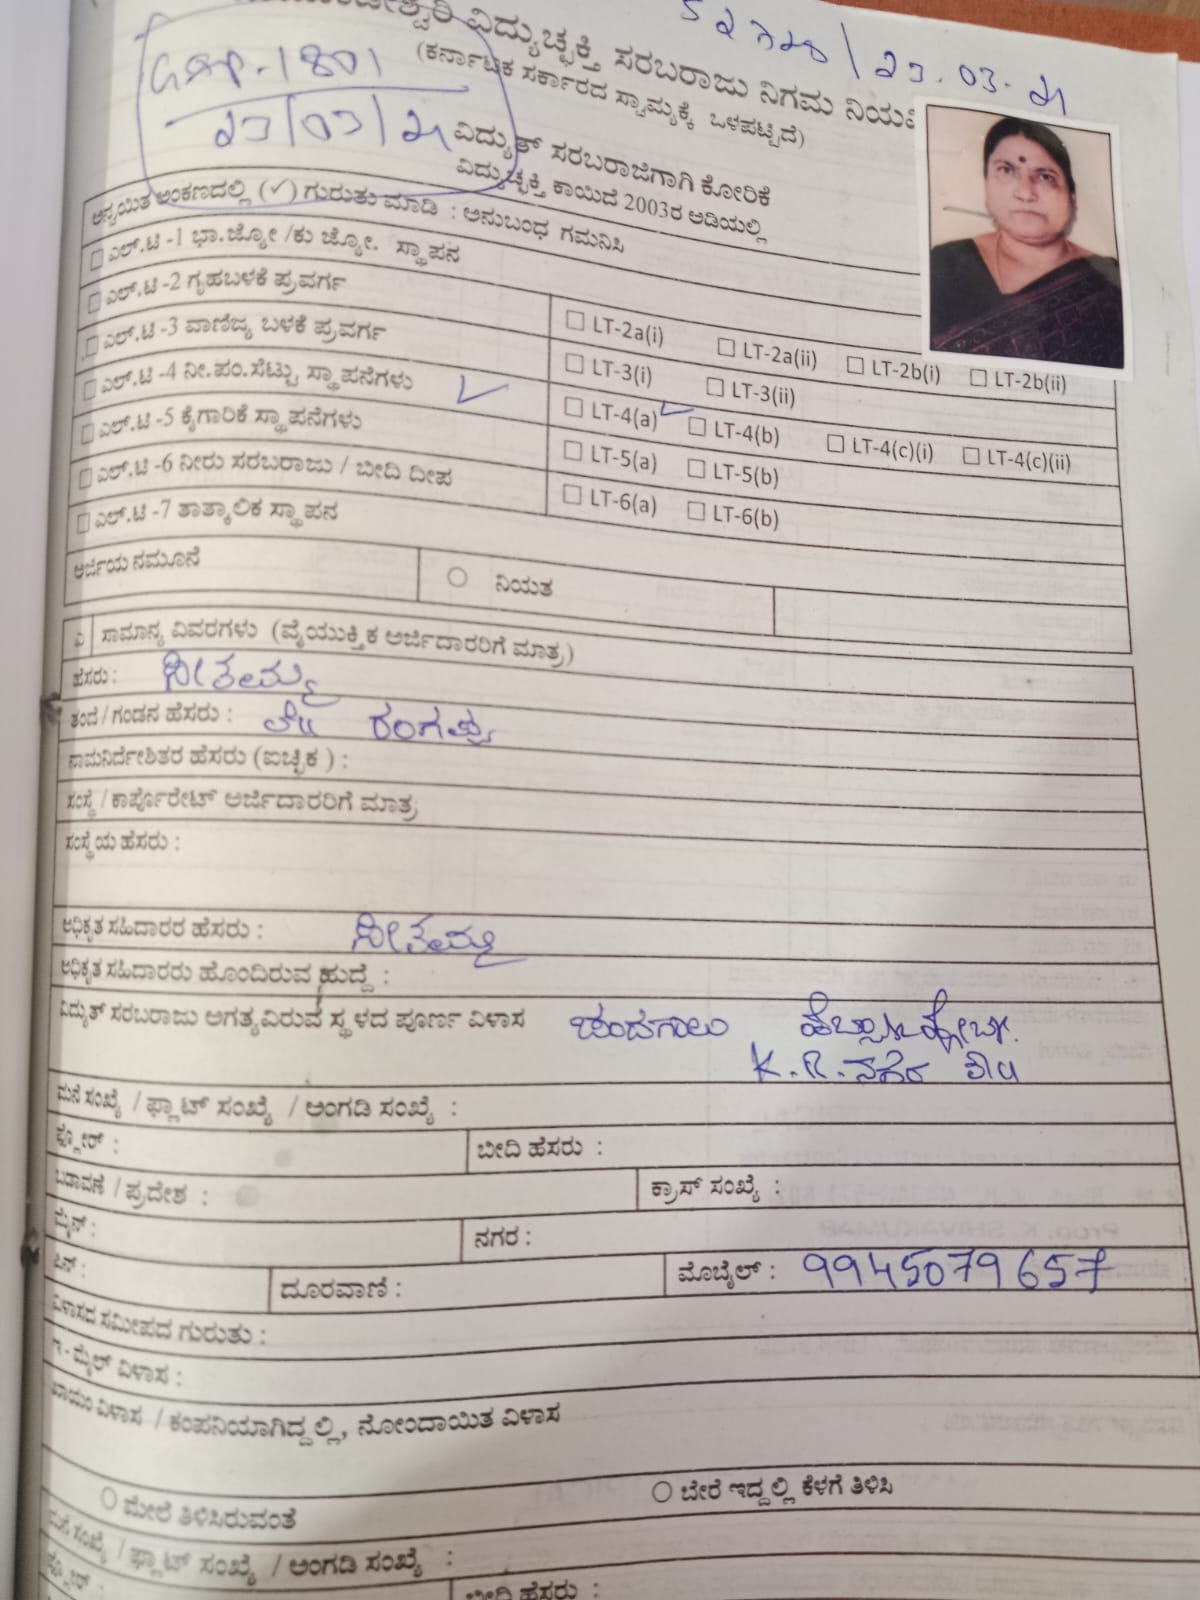 ವಿದ್ಯುಚ್ಛಕ್ತಿ ಸರಬರಾಜು ನಿಗಮ
(ಕರ್ನಾಟಕ ಸರ್ಕಾರದ ಸ್ವಾಮ್ಯಕ್ಕೆ ಒಳಪಟ್ಟಿದೆ)
1801
23/03/21
23.03.21
ವಿದ್ಯುತ್ ಸರಬರಾಜಿಗಾಗಿ ಕೋರಿಕೆ
ವಿದ್ಯುಚ್ಛಕ್ತಿ ಕಾಯಿದೆ 2003ರ ಅಡಿಯಲ್ಲಿ
ಅನ್ವಯಿತ ಅಂಕಣದಲ್ಲಿ (✓) ಗುರುತು ಮಾಡಿ : ಅನುಬಂಧ ಗಮನಿಸಿ
☐ ಎಲ್.ಟಿ -1 ಭಾ.ಜ್ಯೋ /ಕು ಜ್ಯೋ. ಸ್ಥಾಪನ
☐ ಎಲ್.ಟಿ -2 ಗೃಹಬಳಕೆ ಪ್ರವರ್ಗ ☐ LT-2a(i) ☐ LT-2a(ii) ☐ LT-2b(i) ☐ LT-2b(ii)
☐ ಎಲ್.ಟಿ -3 ವಾಣಿಜ್ಯ ಬಳಕೆ ಪ್ರವರ್ಗ ☐ LT-3(i) ☐ LT-3(ii)
☐ ಎಲ್.ಟಿ -4 ನೀ.ಪಂ.ಸೆಟ್ಟು ಸ್ಥಾಪನೆಗಳು ✓ ☐ LT-4(a) ✓ ☐ LT-4(b) ☐ LT-4(c)(i) ☐ LT-4(c)(ii)
☐ ಎಲ್.ಟಿ -5 ಕೈಗಾರಿಕೆ ಸ್ಥಾಪನೆಗಳು ☐ LT-5(a) ☐ LT-5(b)
☐ ಎಲ್.ಟಿ -6 ನೀರು ಸರಬರಾಜು / ಬೀದಿ ದೀಪ ☐ LT-6(a) ☐ LT-6(b)
☐ ಎಲ್.ಟಿ -7 ತಾತ್ಕಾಲಿಕ ಸ್ಥಾಪನ
ಅರ್ಜಿಯ ನಮೂನೆ ○ ನಿಯತ
ಎ ಸಾಮಾನ್ಯ ವಿವರಗಳು (ವೈಯುಕ್ತಿಕ ಅರ್ಜಿದಾರರಿಗೆ ಮಾತ್ರ)
ಹೆಸರು : ಸೀತಮ್ಮ
ತಂದೆ / ಗಂಡನ ಹೆಸರು : ರಂಗಪ್ಪ
ನಾಮನಿರ್ದೇಶಿತರ ಹೆಸರು (ಐಚ್ಛಿಕ ) :
ಸಂಸ್ಥೆ / ಕಾರ್ಪೊರೇಟ್ ಅರ್ಜಿದಾರರಿಗೆ ಮಾತ್ರ
ಸಂಸ್ಥೆಯ ಹೆಸರು :
ಅಧಿಕೃತ ಸಹಿದಾರರ ಹೆಸರು : ಸೀತಮ್ಮ
ಅಧಿಕೃತ ಸಹಿದಾರರು ಹೊಂದಿರುವ ಹುದ್ದೆ :
ವಿದ್ಯುತ್ ಸರಬರಾಜು ಅಗತ್ಯವಿರುವ ಸ್ಥಳದ ಪೂರ್ಣ ವಿಳಾಸ ಚಂದಗಾಲು
K.R.ನಗರ
ಮನೆ ಸಂಖ್ಯೆ / ಫ್ಲಾಟ್ ಸಂಖ್ಯೆ / ಅಂಗಡಿ ಸಂಖ್ಯೆ :
ಫ್ಲೋರ್ : ಬೀದಿ ಹೆಸರು :
ಬಡಾವಣೆ / ಪ್ರದೇಶ : ಕ್ರಾಸ್ ಸಂಖ್ಯೆ :
ಮೈನ್ : ನಗರ :
ಪಿನ್ : ದೂರವಾಣಿ : ಮೊಬೈಲ್ : 9945079657
ವಿಳಾಸದ ಸಮೀಪದ ಗುರುತು :
ಇ - ಮೈಲ್ ವಿಳಾಸ :
ಖಾಯಂ ವಿಳಾಸ / ಕಂಪನಿಯಾಗಿದ್ದಲ್ಲಿ, ನೋಂದಾಯಿತ ವಿಳಾಸ
○ ಮೇಲೆ ತಿಳಿಸಿರುವಂತೆ ○ ಬೇರೆ ಇದ್ದಲ್ಲಿ ಕೆಳಗೆ ತಿಳಿಸಿ
ಮನೆ ಸಂಖ್ಯೆ / ಫ್ಲಾಟ್ ಸಂಖ್ಯೆ / ಅಂಗಡಿ ಸಂಖ್ಯೆ :
ಫ್ಲೋರ್ : ಬೀದಿ ಹೆಸರು :